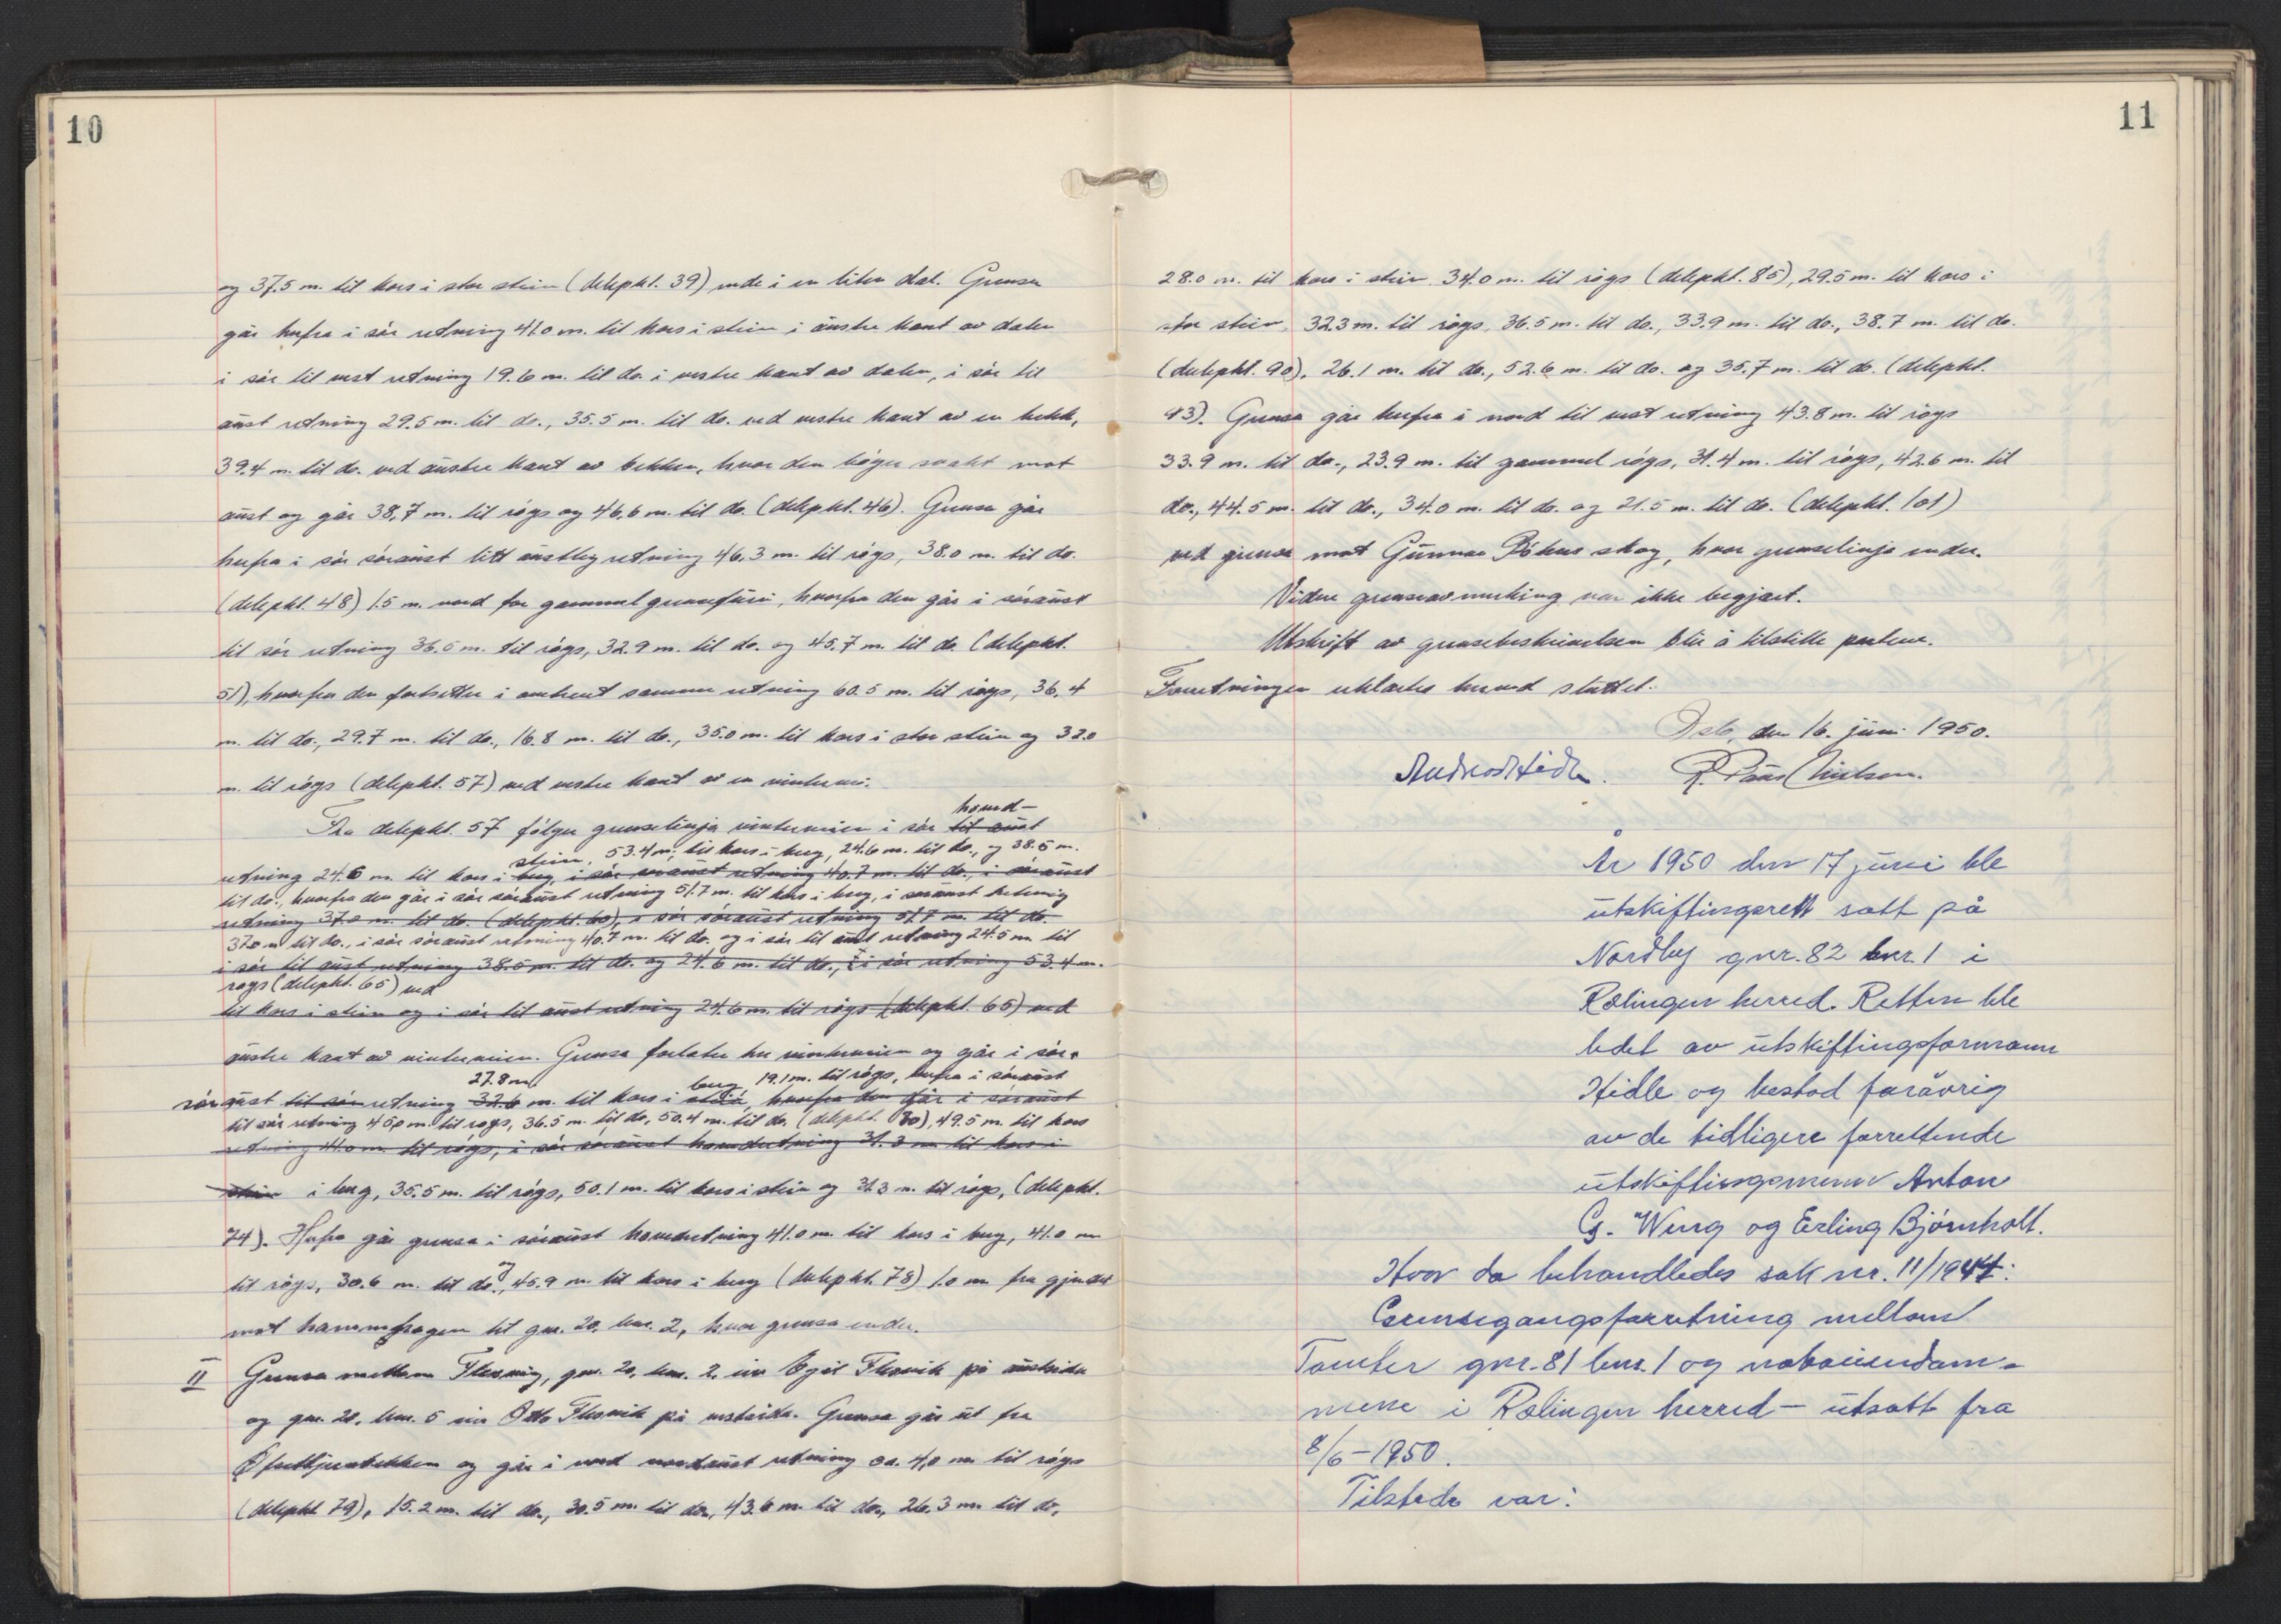 10
og 37.5 m. til kors i stor stein (delepkt. 39) nede i en liten dal. Grensa
går herfra i sör retning 41.0 m. til kors i stein i austre kant av dalen
i sör til vest retning 19.6 m. til do. i vestre kant av dalen, i sör til
aust retning 29.5 m. til do., 35.5 m. til do. ved vestre kant av en bekk,
39.4 m. til do. ved austre kant av bekken, hvor den böyer svakt mot
aust og går 38,7 m. til röys og 46,6 m. til do. (delepkt. 46). Grensa går
herfra i sör söraust litt austleg retning 46.3 m. til röys, 38.0 m. til do.
(delepkt. 48) 1.5 m. nord for gammel grensefuru, hvorfra den går i söraust
til sör retning 36.5 m. til röys, 32.9 m. til do. og 45.7 m. til do. (delepkt.
51), hvorfra den fortsetter i omtrent samme retning 60.5 m. til röys, 36.4
m. til do., 29.7 m. til do., 16.8 m. til do., 35.0 m. til kors i stor stein og 32.0
m. til röys (delepkt. 57) ved vestre kant av en vintervei.
hoved-
Fra delepkt. 57 fölger grenselinja vinterveien i sör til aust
stein, 53.4 m. til kors i berg, 24.6 m. til do., og 38.5 m.
retning 24.6 m. til kors i berg, i sör söraust retning 40.7 m. til do., i söraust
til do., hvorfra den går i sör söraust retning 51.7 m. til kors i berg, i söraust retning
retning 37.0 m. til do. (delepkt. 60), i sör söraust retning 51.7 m. til do.
37.0 m til do., i sör söraust retning 40.7 m. til do. og i sör til aust retning 24.5 m. til
i sör til aust retning 38.5 m. til do. og 24.6 m. til do., i sör retning 53.4 m.
röys (delepkt. 65) ved
til kors i stein og i sör til aust retning 24.6 m. til röys (delepkt. 65) ved
austre kant av vinterveien. Grensa forlater her vinterveien og går i sör-
27.8 m. berg, 19.1 m. til röys, herfra i söraust
söraust til sör retning 32.6 m. til kors i stein, hvorfra den går i söraust
til sör retning 45,0 m. til röys, 36.5 m. til do, 50.4 m. til do. (delepkt. 70), 49.5 m. til kors
retning 41.0 m. til röys, i sör söraust hovedretning 31.3 m. til kors i
stein i berg, 35.5 m. til röys, 50.1 m. til kors i stein og 31.3 m. til röys, (delepkt.
74). Herfra går grensa i söraust hovedretning 41.0 m. til kors i berg, 41.0 m
til röys, 30.6 m. til do. og 45.9 m. til kors i berg (delepkt. 78) 1.0 m. fra gjerdet
mot hamnehagen til gnr. 20, bnr. 2, hvor grensa ender.
II Grensa mellom Flesvig, gnr. 20, bnr. 2. eier Egil Flesvik på austsida
og gnr. 20, bnr. 5 eier Otto Flesvik på vestsida. Grensa går ut fra
og går i nord nordaust retning ca. 4,0 m. til röys
(delepkt. 79), 15.2 m. til do., 30.5 m. til do., 43.6 m. til do., 26.3 m. til do,
11
28.0 m. til kors i stein 34.0 m. til röys (delepkt. 85), 29.5 m. til kors i
stor stein, 32.3 m. til röys, 36.5 m. til do., 33.9 m. til do., 38.7 m. til do.
(delepkt. 90), 26.1 m. til do., 52.6 m. til do. og 35.7 m. til do. (delepkt.
93). Grensa går herfra i nord til vest retning 43.8 m. til röys
33.9 m. til do., 23.9 m. til gammel röys, 31.4 m. til röys, 42.6 m. til
do., 44.5 m. til do., 34.0 m. til do. og 21.5 m. til do. (delepkt. 101)
ved grensa mot Gunnar skog, hvor grenselinja ender.
Videre grenseavmerking var ikke begjært.
Utskrift av grensebeskrivelsen blir å tilstille partene.
Forretningen erklærtes hermed sluttet.
Oslo, den 16. juni 1950.
Andreas Hidle. R.
År 1950 den 17 juni ble
utskiftingsrett satt på
Nordby gnr. 82 bnr. 1 i
Rælingen herred. Retten ble
ledet av utskiftingsformann
Hidle og bestod foråvrig
av de tidligere forrettende
utskiftingsmenn Anton
G. Weng og Erling Björnholt.
Hvor da behandledes sak nr. 11/1944:
Grensegangsforretning mellom
Tomter gnr. 81 bnr. 1 og naboeiendom-
mene i Rælingen herred - utsatt fra
8/6-1950.
Tilstede var: